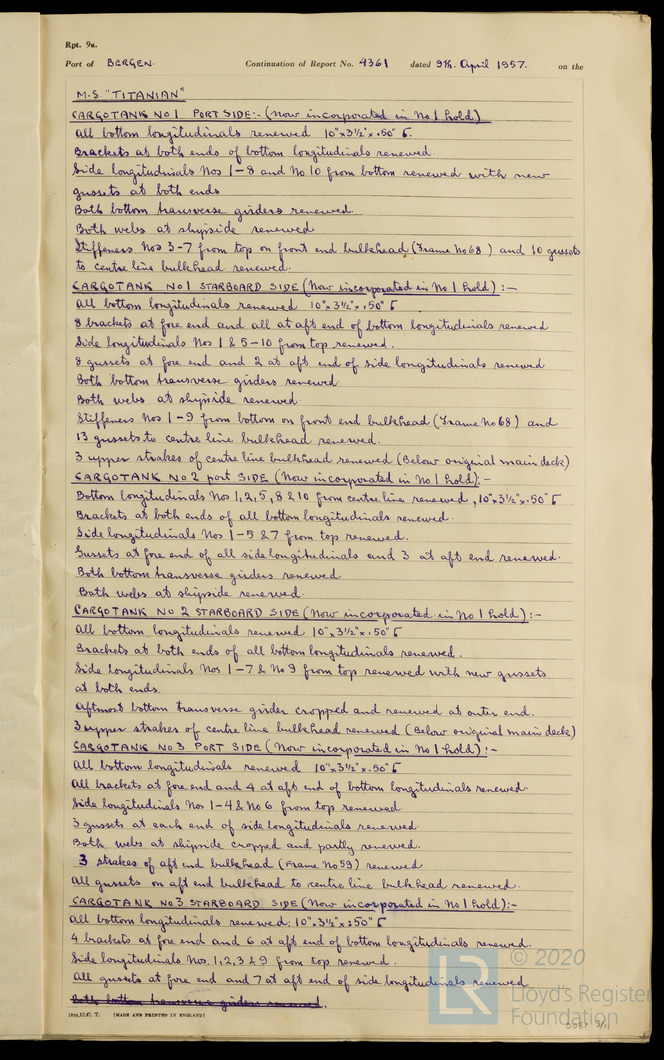 Rpt. 9a.
Port of BERGEN. Continuation of Report No. 4361 dated 9th. April 1957. on the
M.S. "TITANIAN"
CARGOTANK No 1 PORT SIDE:- (Now incorporated in No 1 hold)
All bottom longitudinals renewed 10"x3½"x.50"
Brackets at both ends of bottom longitudinals renewed.
Side longitudinals Nos 1-8 and No 10 from bottom renewed with new
gussets at both ends
Both bottom transverse girders renewed.
Both webs at shipside renewed
Stiffeners Nos 3-7 from top on front end bulkhead (Frame No 68) and 10 gussets
to centre line bulkhead renewed.
CARGOTANK No 1 STARBOARD SIDE (Now incorporated in No 1 hold) :-
All bottom longitudinals renewed 10"x3½"x.50"
8 brackets at fore end and all at aft end of bottom longitudinals renewed
Side longitudinals Nos 1 & 5-10 from top renewed.
8 gussets at fore end and 2 at aft end of side longitudinals renewed
Both bottom transverse girders renewed.
Both webs at shipside renewed.
Stiffeners Nos 1-9 from bottom on front end bulkhead (Frame No 68) and
13 gussets to centre line bulkhead renewed.
3 upper strakes of centre line bulkhead renewed (Below original main deck)
CARGOTANK No 2 port SIDE (Now incorporated in No 1 hold):-
Bottom longitudinals No 1,2,5,8 & 10 from centre line renewed, 10"x3½"x.50"
Brackets at both ends of all bottom longitudinals renewed.
Side longitudinals Nos 1-5 & 7 from top renewed.
Gussets at fore end of all side longitudinals and 3 at aft end renewed.
Both bottom transverse girders renewed
Both webs at shipside renewed.
CARGOTANK No 2 STARBOARD SIDE (Now incorporated in No 1 hold):-
All bottom longitudinals renewed 10"x3½"x.50"
Brackets at both ends of all bottom longitudinals renewed.
Side longitudinals Nos 1-7 & No 9 from top renewed with new gussets
at both ends.
Aftmost bottom transverse girder cropped and renewed at outer end.
3 upper strakes of centre line bulkhead renewed (Below original main deck)
CARGOTANK No 3 PORT SIDE (Now incorporated in No 1 hold):-
All bottom longitudinals renewed 10"x3½"x.50"
All brackets at fore end and 4 at aft end of bottom longitudinals renewed.
Side longitudinals Nos 1-4 & No 6 from top renewed.
3 gussets at each end of side longitudinals renewed.
Both webs at shipside cropped and partly renewed.
3 strakes of aft end bulkhead (Frame No 59) renewed
All gussets on aft end bulkhead to centre line bulkhead renewed.
CARGOTANK No 3 STARBOARD SIDE (Now incorporated in No 1 hold):-
All bottom longitudinals renewed: 10"x3½"x.50"
4 brackets at fore end and 6 at aft end of bottom longitudinals renewed.
Side longitudinals Nos. 1,2,3 & 9 from top renewed.
All gussets at fore end and 7 at aft end of side longitudinals renewed
Both bottom transverse girders renewed.
(MADE AND PRINTED IN ENGLAND)
© 2020
LR
Lloyd's Register
Foundation